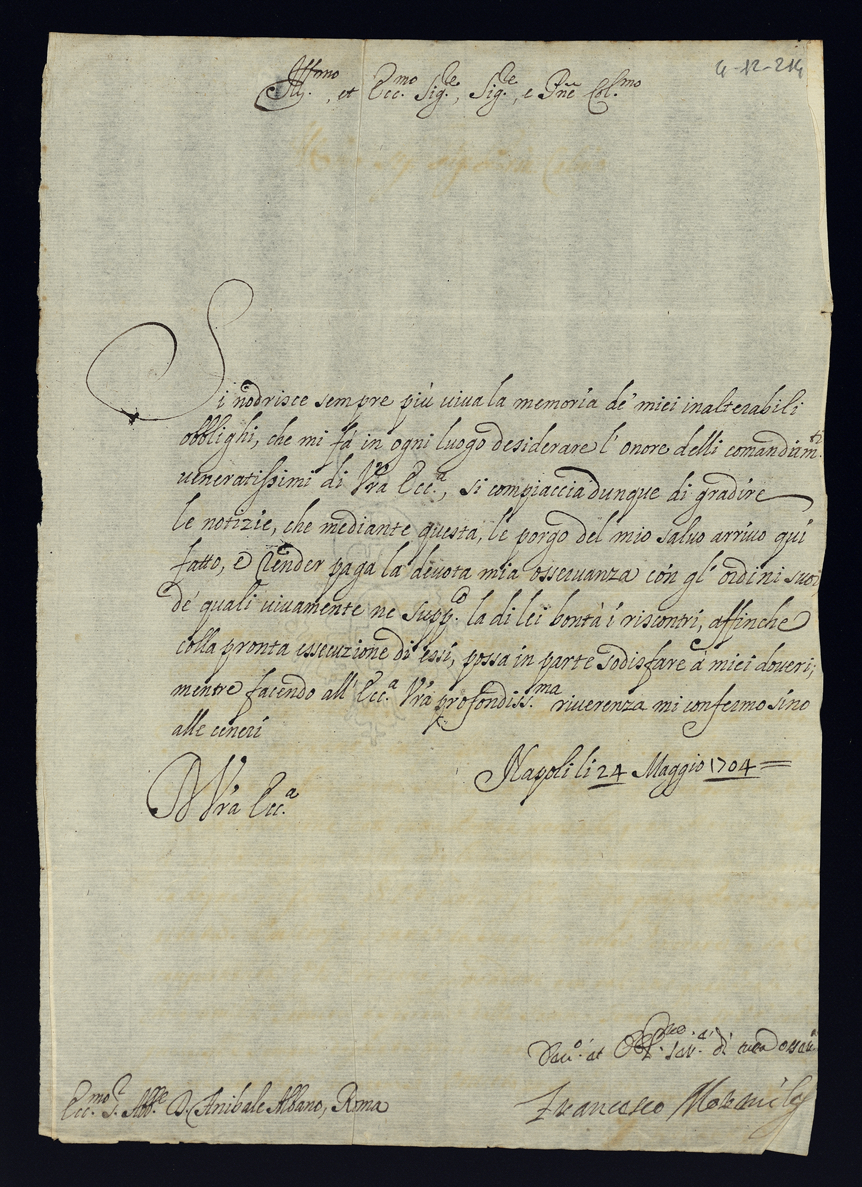 4-12-214
Ill.mo, et Ecc.mo Sig.re, Sig.re, e Pne Col.mo
Si nodrisce sempre più viva la memoria de' miei inalterabili
obblighi, che mi fà in ogni luogo desiderare l'onore delli comandam.ti
veneratissimi di Vrã Ecc.a, si compiaccia dunque di gradire
le notizie, che mediante questa, le porgo del mio salvo arrivo quì
fatto, e render paga la devota mia osservanza con gl'ordini suoi,
de' quali vivamente ne supp.co la di lei bontà i riscontri, affinche
colla pronta essecuzione di essi, possa in parte sodisfare à miei doveri;
mentre facendo all'Ecc.a Vrã profondiss.ma riverenza mi confermo sino
alle ceneri
Napoli li 24 Maggio 1704
D Vrã Ecc.a
Dev.o et Obl.mo ser.e di
Francesco
Ecc.mo S. Abb.e D. Anibale Albano, Roma